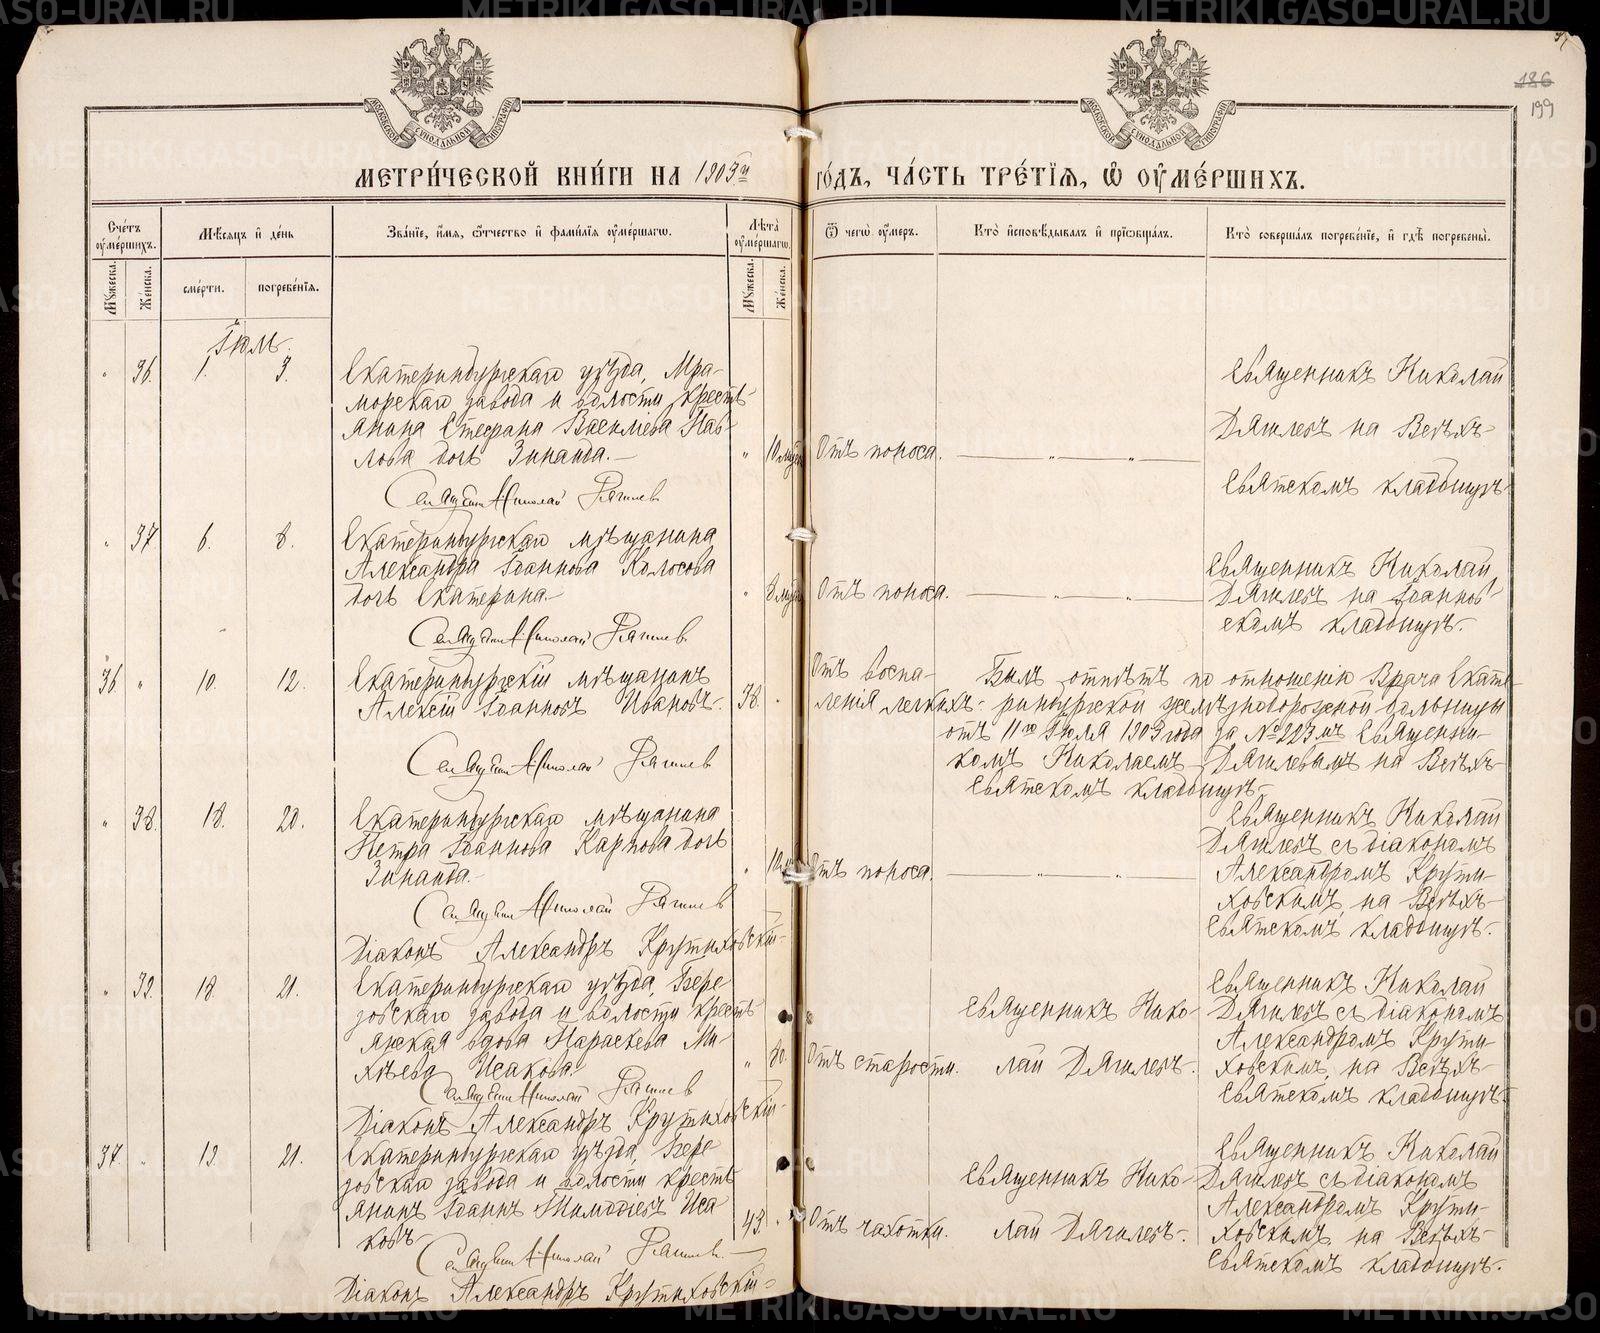 МЕТРИ́ЧЕСКОЙ КНИ́ГИ НА 1903й ГО́ДЪ, ЧА́СТЬ ТРЕ́ТІѦ, Ѡ ОУМЕ́РШИХЪ.
186
199
Сче́тъ оумéршихъ.
Мѣ́сѧцъ и де́нь
Зва́нїе, и́мѧ, ѻ҆́тчество и фами́лїѧ оумéршагѡ.
Лѣ́та оумéршагѡ.
Ѿ чегѡ̀ оу́меръ.
Кто̀ и҆сповѣ́дывалъ и прїѡбща́лъ.
Кто̀ соверша́лъ погребе́нїе, и гдѣ̀ погребены̀.
Мꙋ́жеска.
Же́нска.
сме́рти.
погребе́нїѧ.
Мꙋ́жеска.
Же́нска.
Іюль.
" 36. 1. 3.
Екатеринбургскаго уѣзда, Мра-
морскаго завода и волости крестъ-
янина Стефана Василіева Пав-
лова дочь Зинаида.
Священникъ Николай Дягилевъ
" 10 мѣс.
Отъ поноса.
Священникъ Николай
Дягилевъ на Всѣхъ-
святскомъ кладбищѣ.
" 37 6. 8.
Екатеринбургскаго мѣщанина
Александра Іоаннова Колосова
дочь Екатерина
Священникъ Николай Дягилевъ
" 8 мѣс.
Отъ поноса.
Священникъ Николай
Дягилевъ на Іоаннов-
скомъ кладбищѣ.
36. " 10. 12.
Екатеринбургскій мѣщанинъ
Алексій Іоанновъ Ивановъ.
Священникъ Николай Дягилевъ
38. "
Отъ воспа-
ленія легкихъ.
Былъ отпѣтъ по отношенію Врача Екате-
ринбургской желѣзнодорожной больницы
отъ 11го Іюля 1903 года за № 223мъ Священни-
комъ Николаемъ Дягилевымъ на Всѣхъ-
святскомъ кладбищѣ.
" 38. 18. 20.
Екатеринбургскаго мѣщанина
Петра Іоаннова Карпова дочь
Зинаида.
Священникъ Николай Дягилевъ
Діаконъ Александръ Крутиховскій
Отъ поноса.
Священникъ Николай
Дягилевъ съ діакономъ
Александромъ Крути-
ховскимъ, на Всѣхъ-
святскомъ кладбищѣ.
" 39. 18. 21.
Екатеринбургскаго уѣзда, Бере
зовскаго завода и волости кресть
янская вдова Параскева Ми-
хѣева Исакова.
Священникъ Николай Дягилевъ
Діаконъ Александръ Крутиховскій
" 80.
Отъ старости.
Священникъ Нико-
лай Дягилевъ.
Священникъ Николай
Дягилевъ съ діакономъ
Александромъ Крути-
ховскимъ, на Всѣхъ-
святскомъ кладбищѣ.
37. " 19. 21.
Екатеринбургскаго уѣзда, Бере
зовскаго завода и волости кресть
янинъ Іоаннъ Тимофіевъ Иса
ковъ
Священникъ Николай Дягилевъ.
Діаконъ Александръ Крутиховскій
43. "
Отъ чахотки.
Священникъ Нико-
лай Дягилевъ.
Священникъ Николай
Дягилевъ съ діакономъ
Александромъ Крути-
ховскимъ на Всѣхъ-
святскомъ кладбищѣ.
METRIKI.GASO-URAL.RU